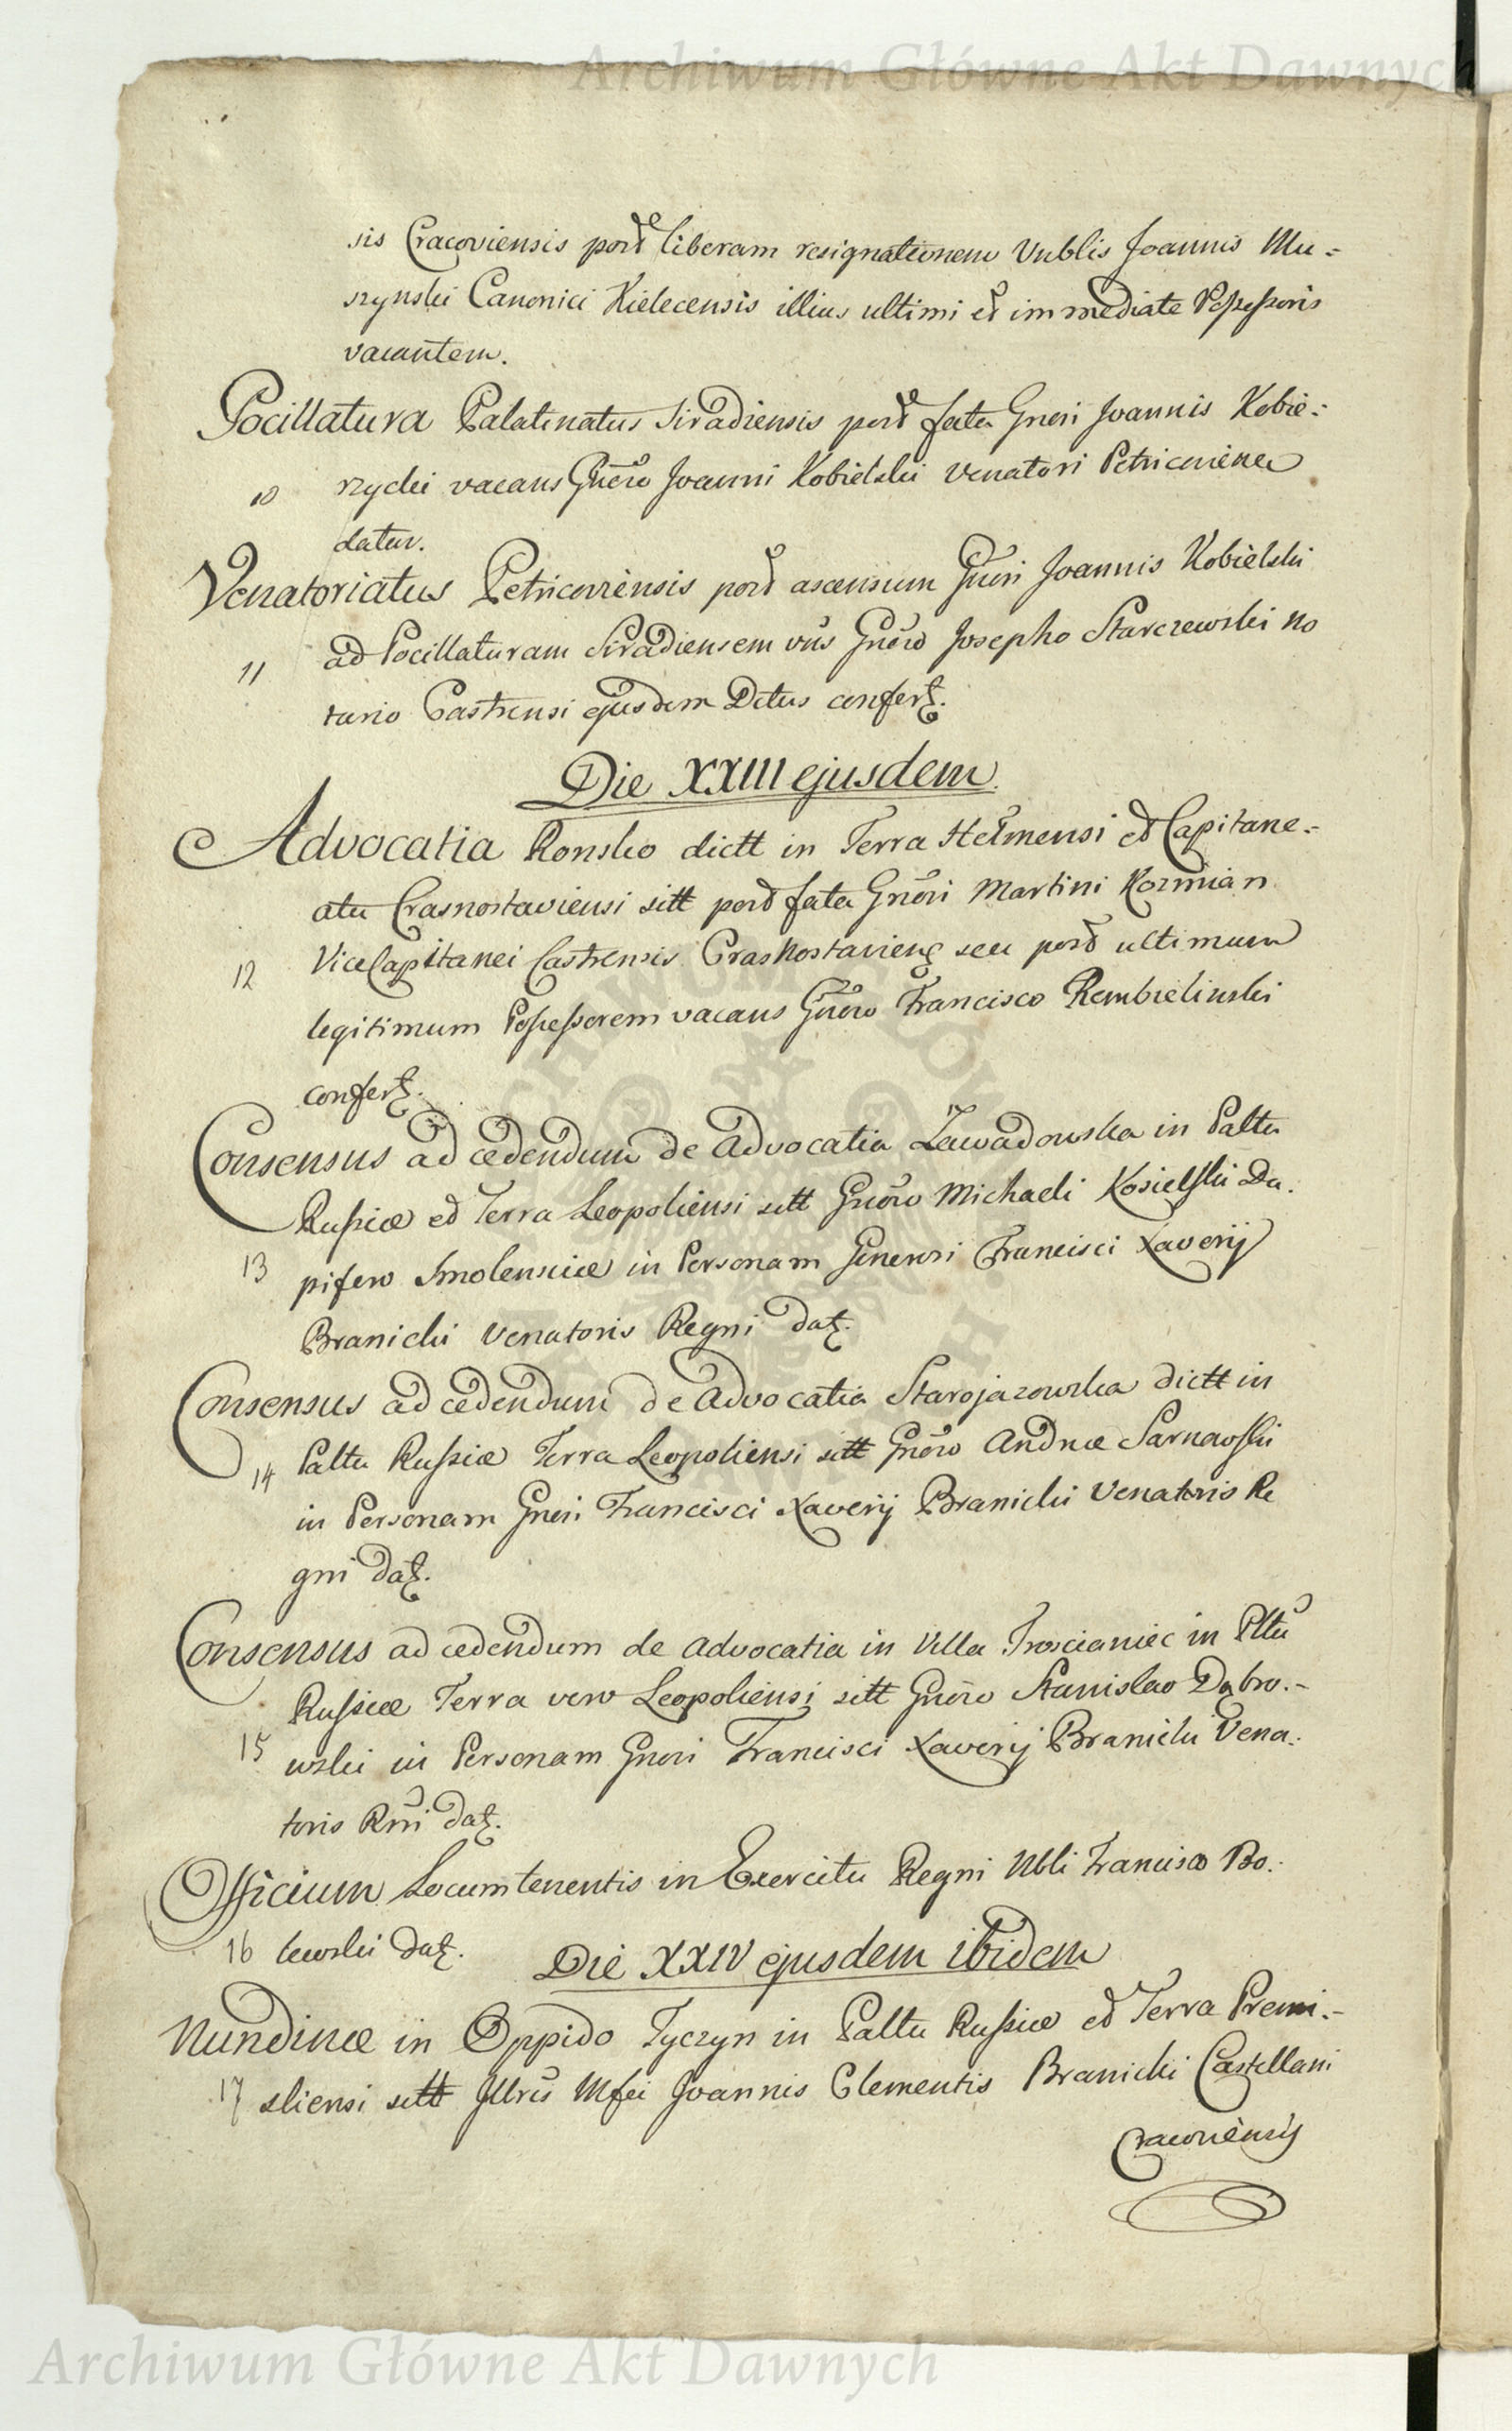 Archiwum Główne Akt Dawnyc
sis Cracoviensis post liberam resignationem Vnblis Joannis Mu-
szynski Canonici Kielecensis illius ultimi et immediate Possessoris
vacantem.
Pocillatura Palatinatus Siradiensis post fata Gneri Joannis Kobie-
rzycki vacans Gnero Joanni Kobielski Venatori Petricovien
10
datur.
Venatoriatus Petricoviensis post ascensum Gneri Joannis Kobielski
11 ad Pocillaturam Siradiensem vns Gnero Josepho Starczewski No
tario Castrensi ejusdem Dctus confert.
Die XXIII ejusdem
Advocatia Ronsko dictt in Terra Helmensi et Capitane-
atu Crasnostaviensi sitt post fata Gneri Martini Kozmian
12 ViceCapitanei Castrensis Crasnostaviens seu post ultimum
legitimum Possessorem vacans Gnero Francisco Rembielinski
confert.
Consensus ad cedendum de Advocatia Zawadowska in Paltu
Russiæ et Terra Leopoliensi sitt Gnero Michaeli Kosielski Da-
13 pifero Smolensciæ in Personam Generosi Francisci Xaverij
Branicki Venatoris Regni dat.
Consensus ad cedendum de Advocatia Starojazowska dictt in
14 Paltu Russiæ Terra Leopoliensi sitt Gnero Andreæ Sarnowski
in Personam Gneri Francisci Xaverij Branicki Venatoris Re
gni dat.
Consensus ad cedendum de Advocatia in Villa Troscianiec in Pltu
Russiæ Terra vero Leopoliensi sitt Gnero Stanislao Dąbro-
15 wski in Personam Gneri Francisci Xaverij Branicki Vena-
toris Rni dat.
Officium Locumtenentis in Exercitu Regni Nbli Francisco Bo-
16 lewski dat.
Die XXIV ejusdem ibidem
Nundinæ in Oppido Tyczyn in Paltu Russiæ et Terra Premi-
17 sliensi sitt Illris Mfci Joannis Clementis Branicki Castellani
Cracoviensis
Archiwum Główne Akt Dawnych